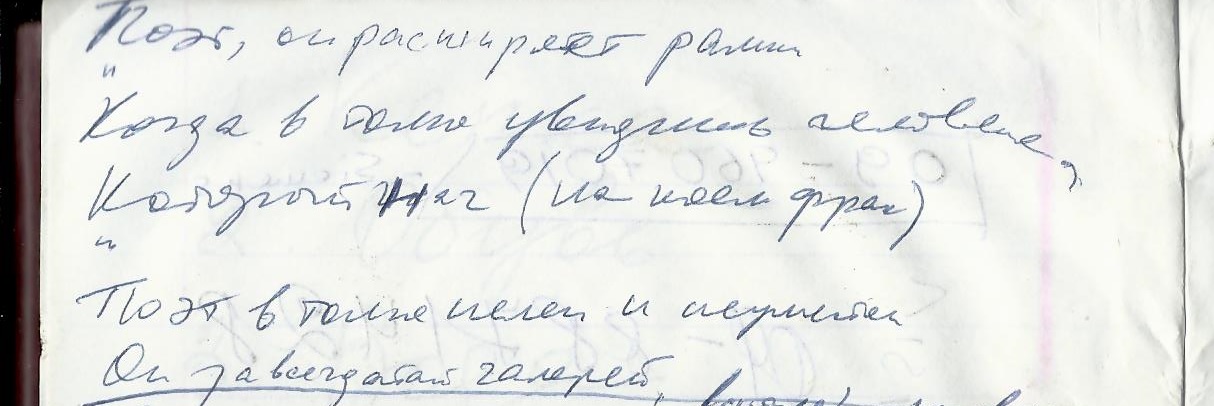 Поэт, он расширяет рамки
"
Когда в толпе увидишь человека,
Который наг (на коем фрак)
"
Поэт в толпе нелеп и неуместен
Он завсегдатай галерей,